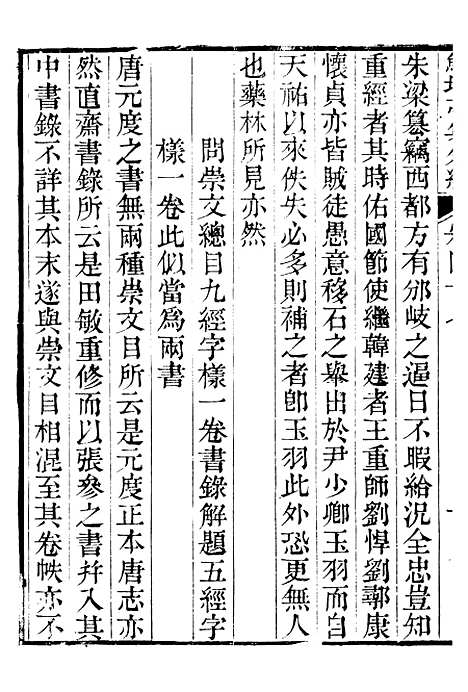 朱梁篡竊西都方有邠岐之逼日不暇給況全忠豈知
重經者其時佑國節使繼韓建者王重師劉悍劉鄩康
懷貞亦皆賊徒愚意移石之舉出於尹少卿玉羽而自
天祐以來佚失必多則補之者卽玉羽此外恐更無人
也藥林所見亦然
問崇文總目九經字樣一卷書錄解題五經字
樣一卷此似當為兩書
唐元度之書無兩種崇文目所云是元度正本唐志亦
然直齋書錄所云是田敏重修而以張參之書幷入其
中書錄不詳其本末遂與崇文目相混至其卷帙亦不